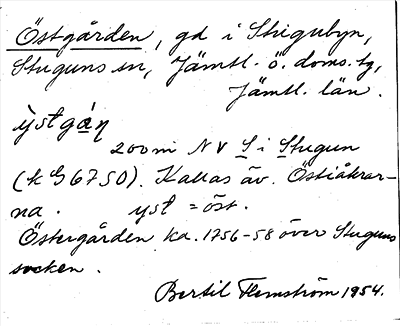 Östgården, gd i Stugubyn,
Stuguns sn, Jämtl. ö. doms. tg,
Jämtl. län.
ỳstgán̥
200 m NV S i Stugun
(k G 6750). Kallas äv. Östiåkrar-
na. yst = öst.
Östergården ka. 1756-58 över Stuguns
socken.
Bertil Flemström 1954.